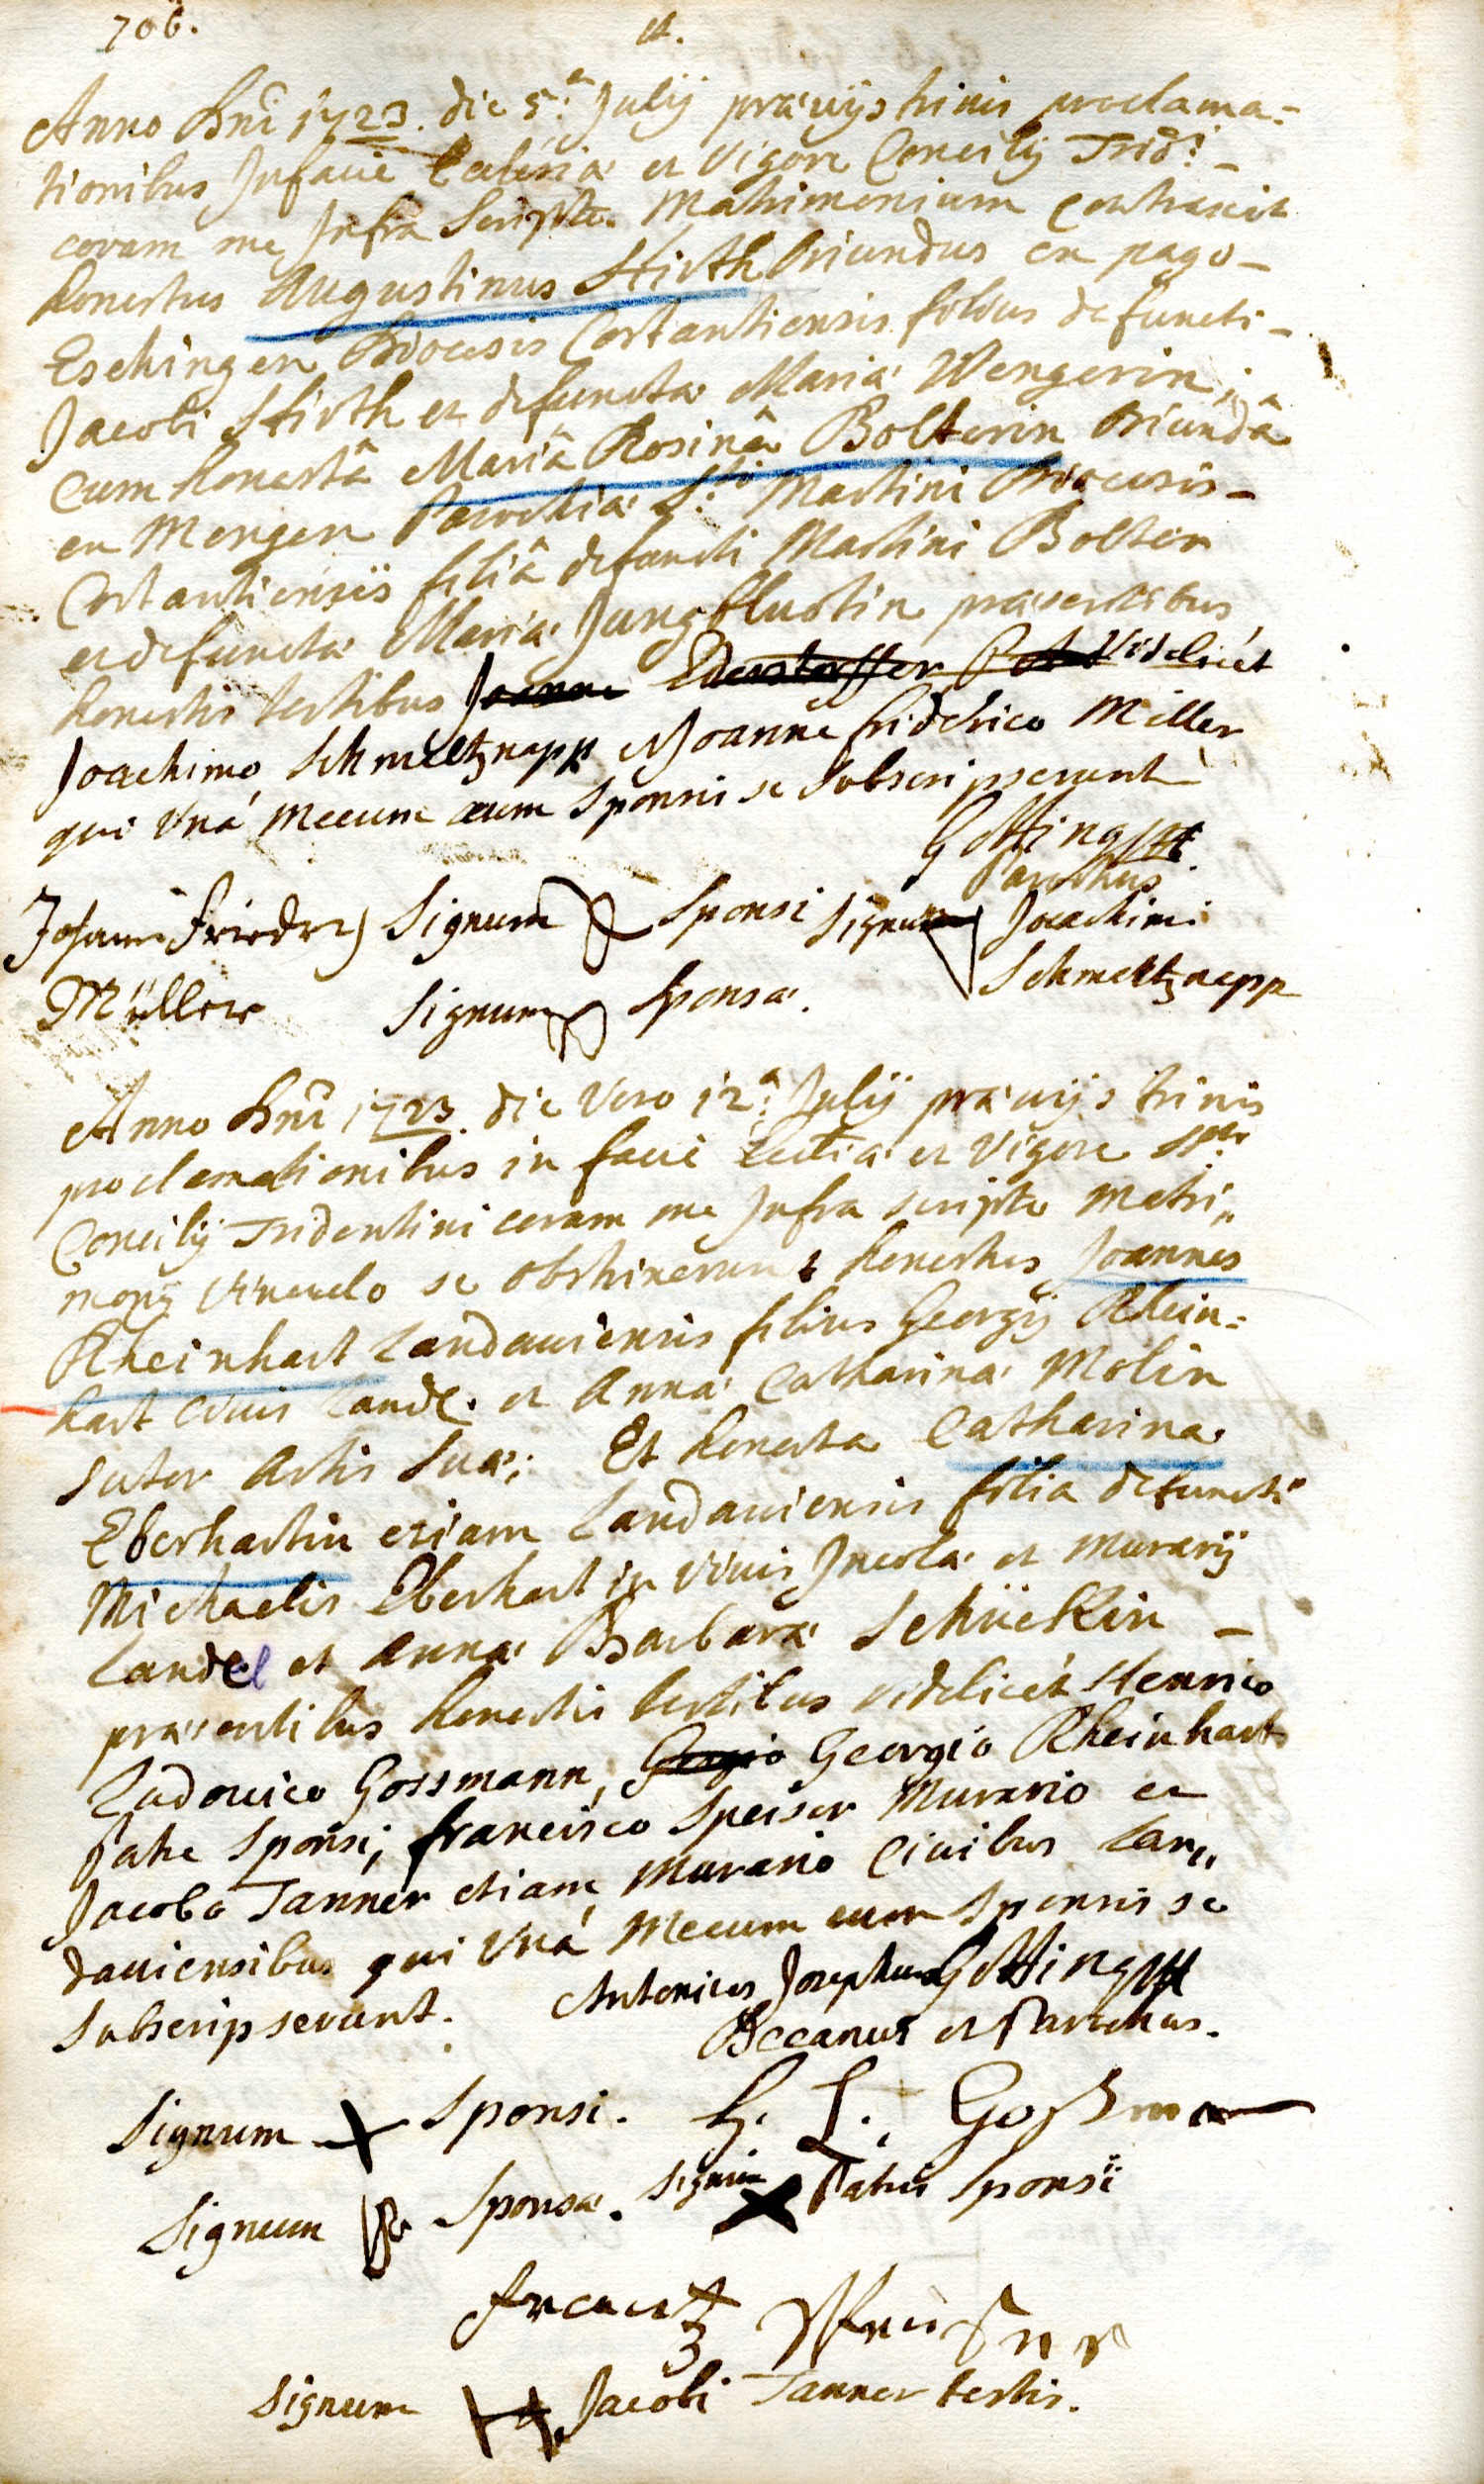 706.
et.
Anno Dnî 1723. die 5.ᵃ Julij præuijs trinis proclama=
tionibus Jnfacie Ecclesiæ et Vigore Concilij Trid:i
coram me Jnfra Scripto Matrimonium Contraxit
honestus Augustinus Hirth Oriundus ex pago
Eschingen Dioecesis Constantiensis filius defuncti
Jacobi Hirth et defunctæ Mariæ Wengerin;
Cum honestâ Mariâ Rosinâ Bolterin Oriundâ
ex Mengen Parochiæ S.ti Martini Dioecesis
Constantiensis filiâ defuncti Martini Bolter
et defunctæ Mariæ Jungbluotin præsentibus
honestis testibus Joanne Videlicét
Joachimo Schmeltznapp et Joanne friderico Miller
qui Vná Mecum cum Sponsis se Subscripserunt
Götting
Parochus
Johann Friedrich Signum Sponsi Signum Joachimi
Müller Signum Sponsæ. Schmeltznapp
Anno Dnî 1723. die Vero 12.ᵃ Julij præuijs trinis
proclamationibus in facie Ecclîæ et Vigore
Concilij Tridentini coram me Jnfra scripto Matri„
monij Vinculo se obstrinxerunt honestus Joannes
Rheinhart Landauiensis filius Georgij Rhein=
hart Ciuis Land. et Annæ Catharinæ Molin
Sutor Artis Suæ; Et honesta Catharina
Eberhartin etiam Landauiensis filia defuncti
Michaelis Eberhart in Viuis Jncolæ et Murarij
Land. et Annæ Barbaræ Schückin
præsentibus honestis testibus videlicét Henrico
Ludouico Gossmann, Georgio Georgio Rheinhart
Patre Sponsi, francisco Speiser Murario et
Jacobo Tanner etiam Murario Ciuibus Lan„
dauiensibus qui Vná Mecum cum Sponsis se
Subscripserunt. Antonius Josephus Götting
Decanus et Parochus.
Signum Sponsi. H. L. Goßman
Signum Sponsæ. Signum Patris Sponsi
frantz
Signum Jacobi Tanner testis.